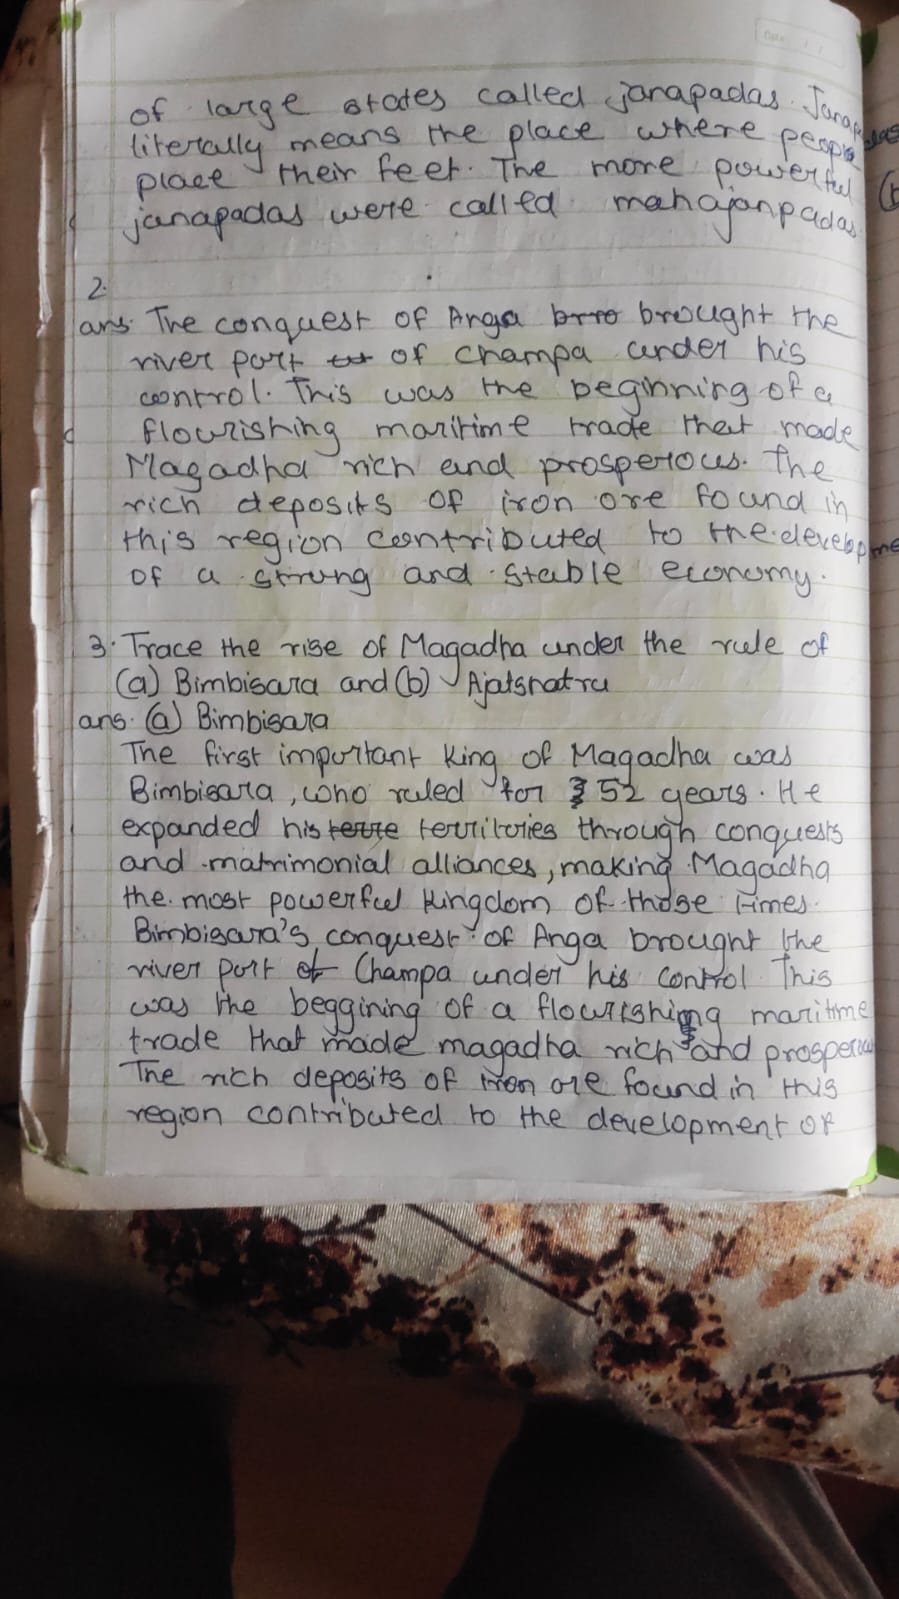 of large states called janapadas. Janapadas
literally means the place where people
place their feet. The more powerful
janapadas were called mahajanpadas.
2.
ans. The conquest of Anga brro brought the
river port of Champa under his
control. This was the beginning of a
flourishing maritime trade that made
Magadha rich and prosperous. The
rich deposits of iron ore found in
this region contributed to the developme
of a strong and stable economy.
3. Trace the rise of Magadha under the rule of
(a) Bimbisara and (b) Ajatshatru
ans. (a) Bimbisara
The first important King of Magadha was
Bimbisara, who ruled for 52 years. He
expanded his terre territories through conquests
and matrimonial alliances, making Magadha
the most powerful kingdom of those times.
Bimbisara's conquest of Anga brought the
river port of Champa under his control. This
was the beggining of a flourishing maritime
trade that made magadha rich and prosperou
The rich deposits of iron ore found in this
region contributed to the development of